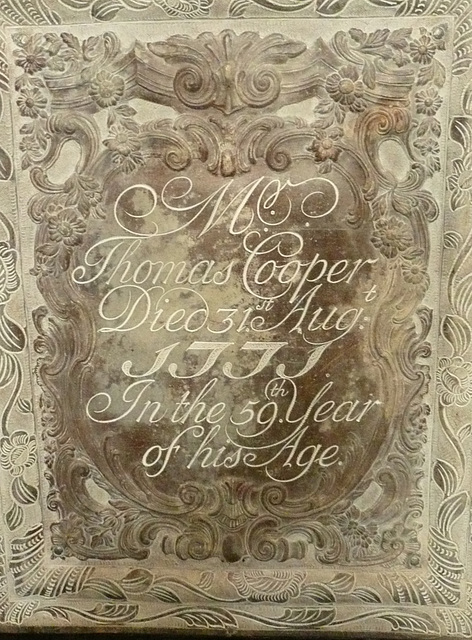 Mr.
Thomas Cooper
Died 31st Augt:
1771
In the 59th. Year
of his Age.